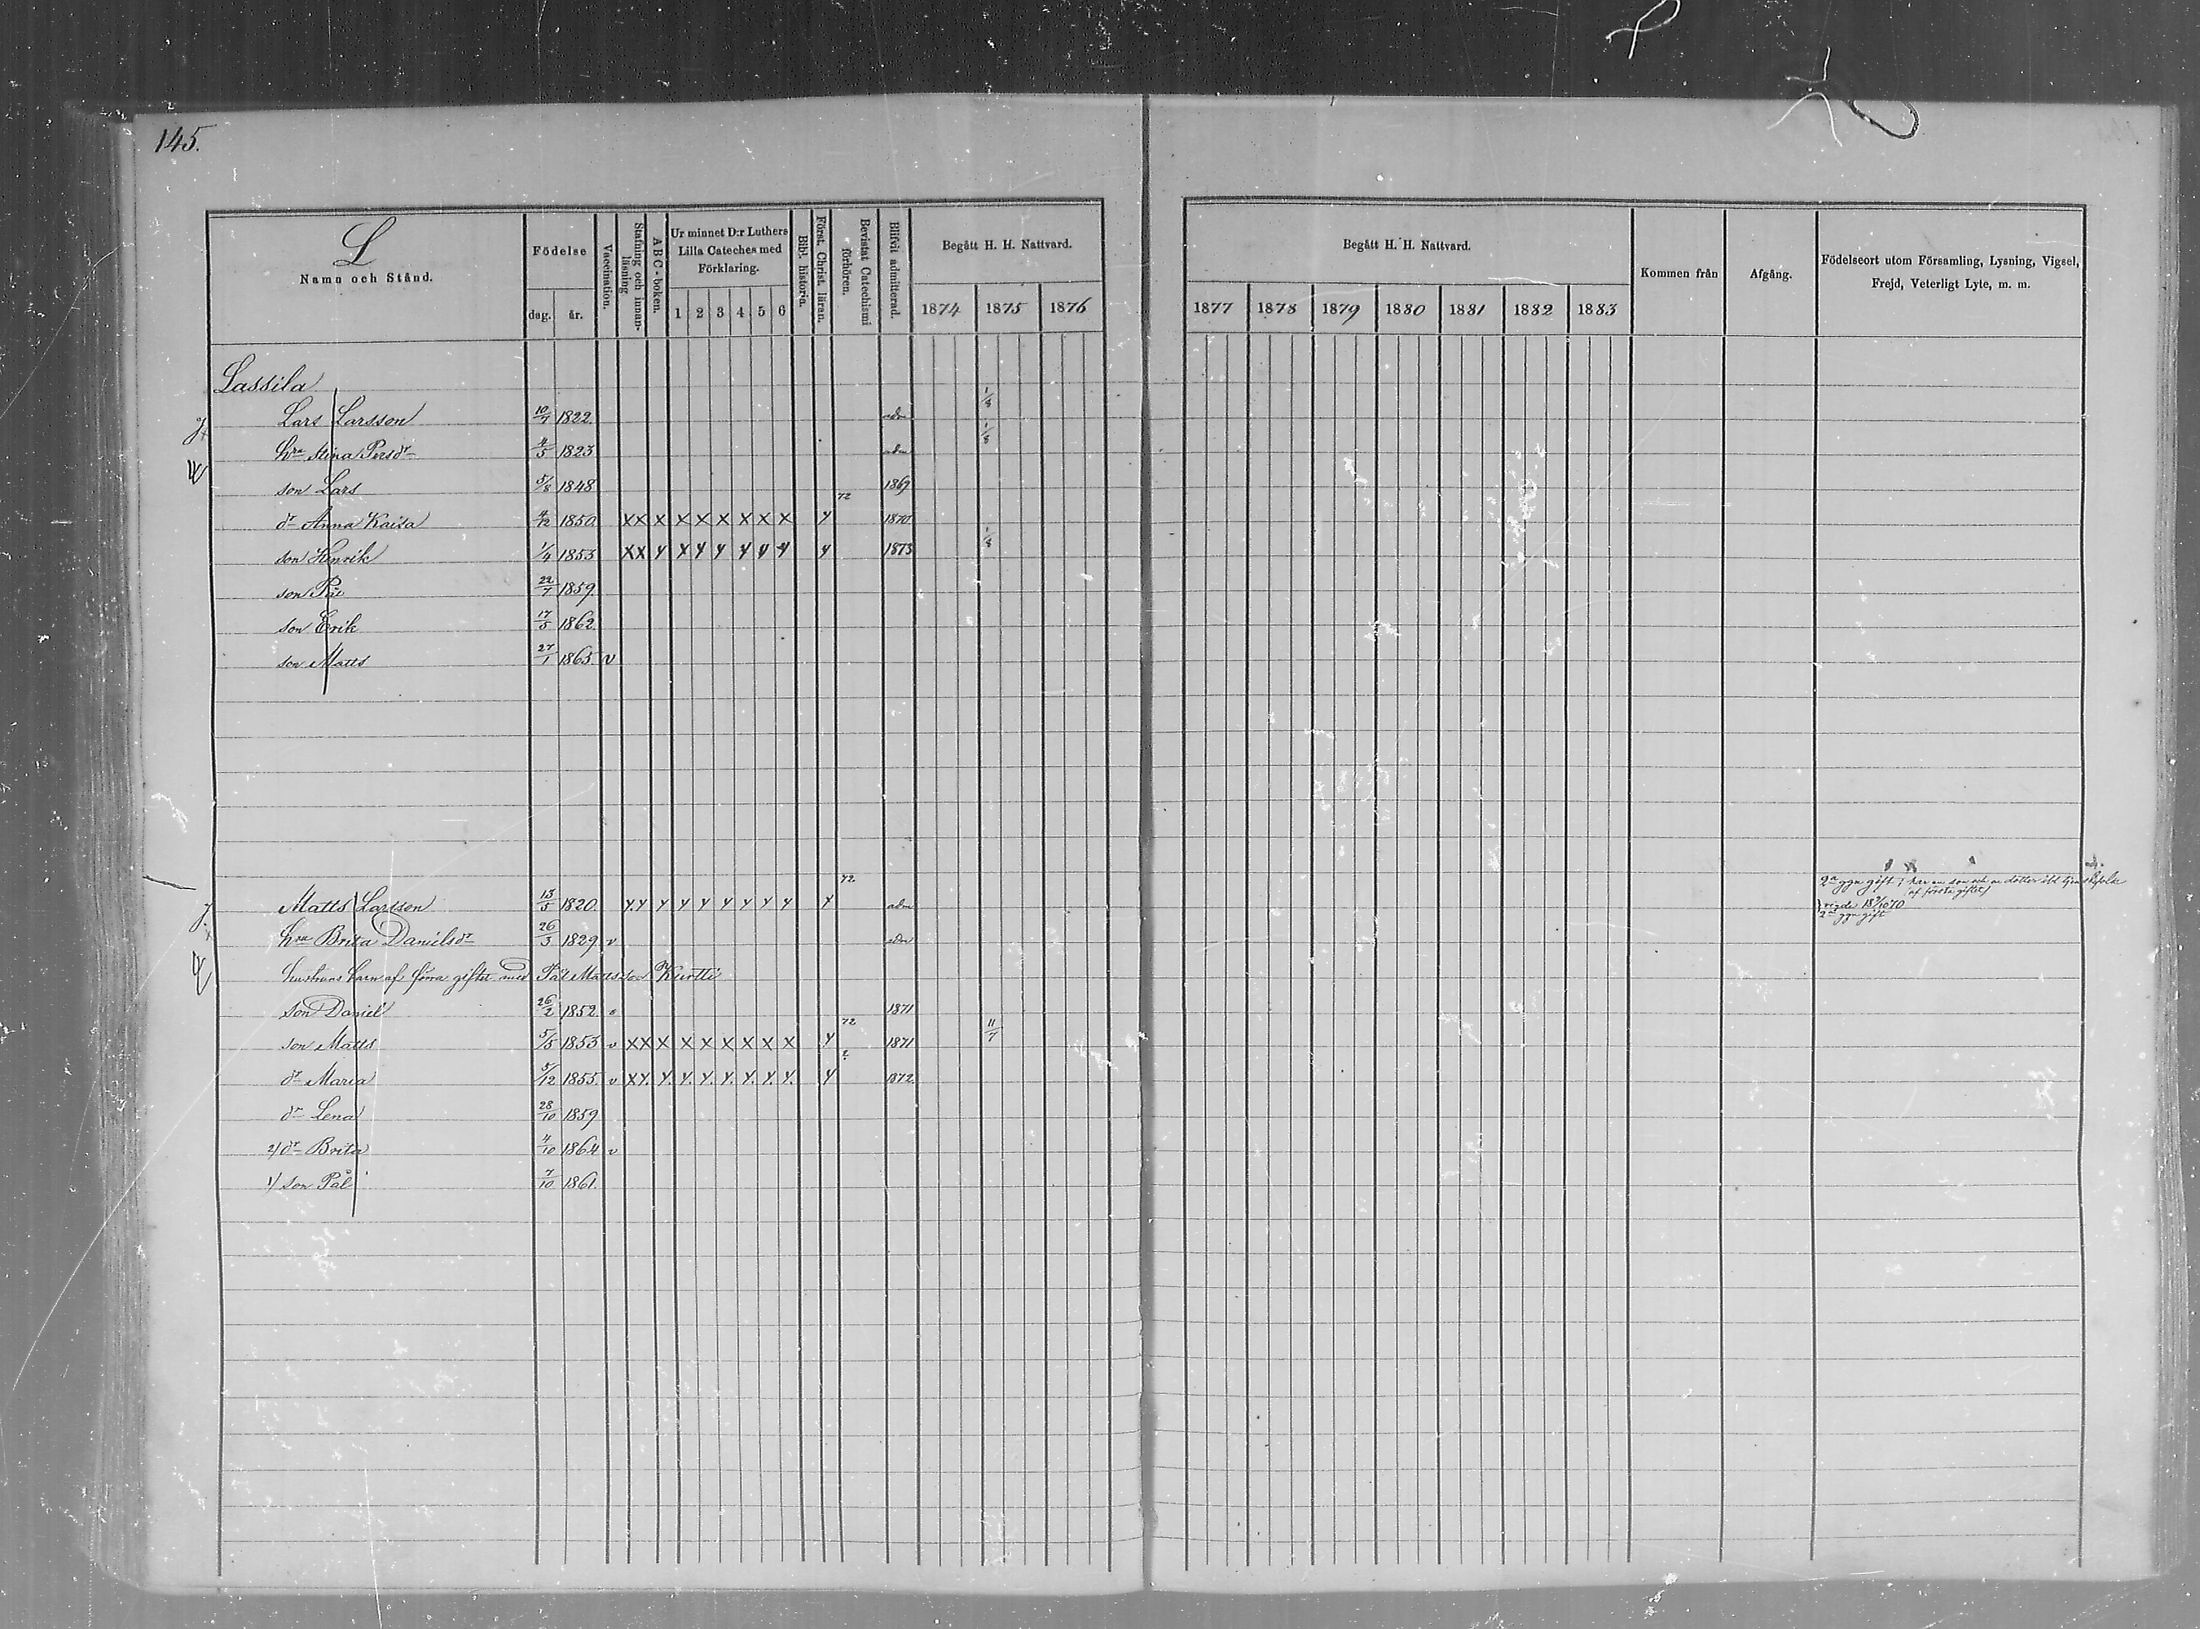 145.
L
Namn och Stånd.
Födelse
dag. år.
Vaccination.
Stafning och innan-läsning
ABC-boken.
Ur minnet D:r Luthers Lilla Cateches med Förklaring.
1 2 3 4 5 6
Bibl. historia.
Först. Christ. läran.
Bevistat Catechismi förhören.
Blifvit admitterad.
Begått H. H. Nattvard.
1874 1875 1876
Begått H. H. Nattvard.
1877 1878 1879 1880 1881 1882 1883
Kommen från
Afgång.
Födelseort utom Församling, Lysning, Vigsel, Frejd, Veterligt Lyte, m. m.
Lassila
Lars Larsson 10/7 1822. adm 1/8
hru Stina Persdr 4/5 1823 adm 1/8
son Lars 5/8 1848 1869
dr Anna Kaisa 4/12 1850. XX X X X X X X X Y 72 1870.
son Henrik 1/4 1853 XX Y Y Y Y Y Y Y Y 1873 1/8
son Pål 22/7 1859.
son Erik 17/5 1862.
son Matts 27/1 1865 v
Matts Larsson 13/5 1820. Y.Y Y Y Y Y Y Y Y Y 72 adm 2a ggn gift; har en son och en dotter
af första giftet
vigde
hru Brita Danielsdr 26/3 1829 v adm 2a ggn gift
hustruns barn af förra giftet med Pål Mattsson Kurtti
son Daniel 26/2 1852. 1871
son Matts 5/5 1853 v XX X X X X X X X Y 72 1871 11/7
dr Maria 5/12 1855. v XY. Y. Y. Y. Y. Y. Y. Y. Y 1872
dr Lena 28/10 1859
2) dr Brita 4/10 1864 v
1) son Pål 7/10 1861.